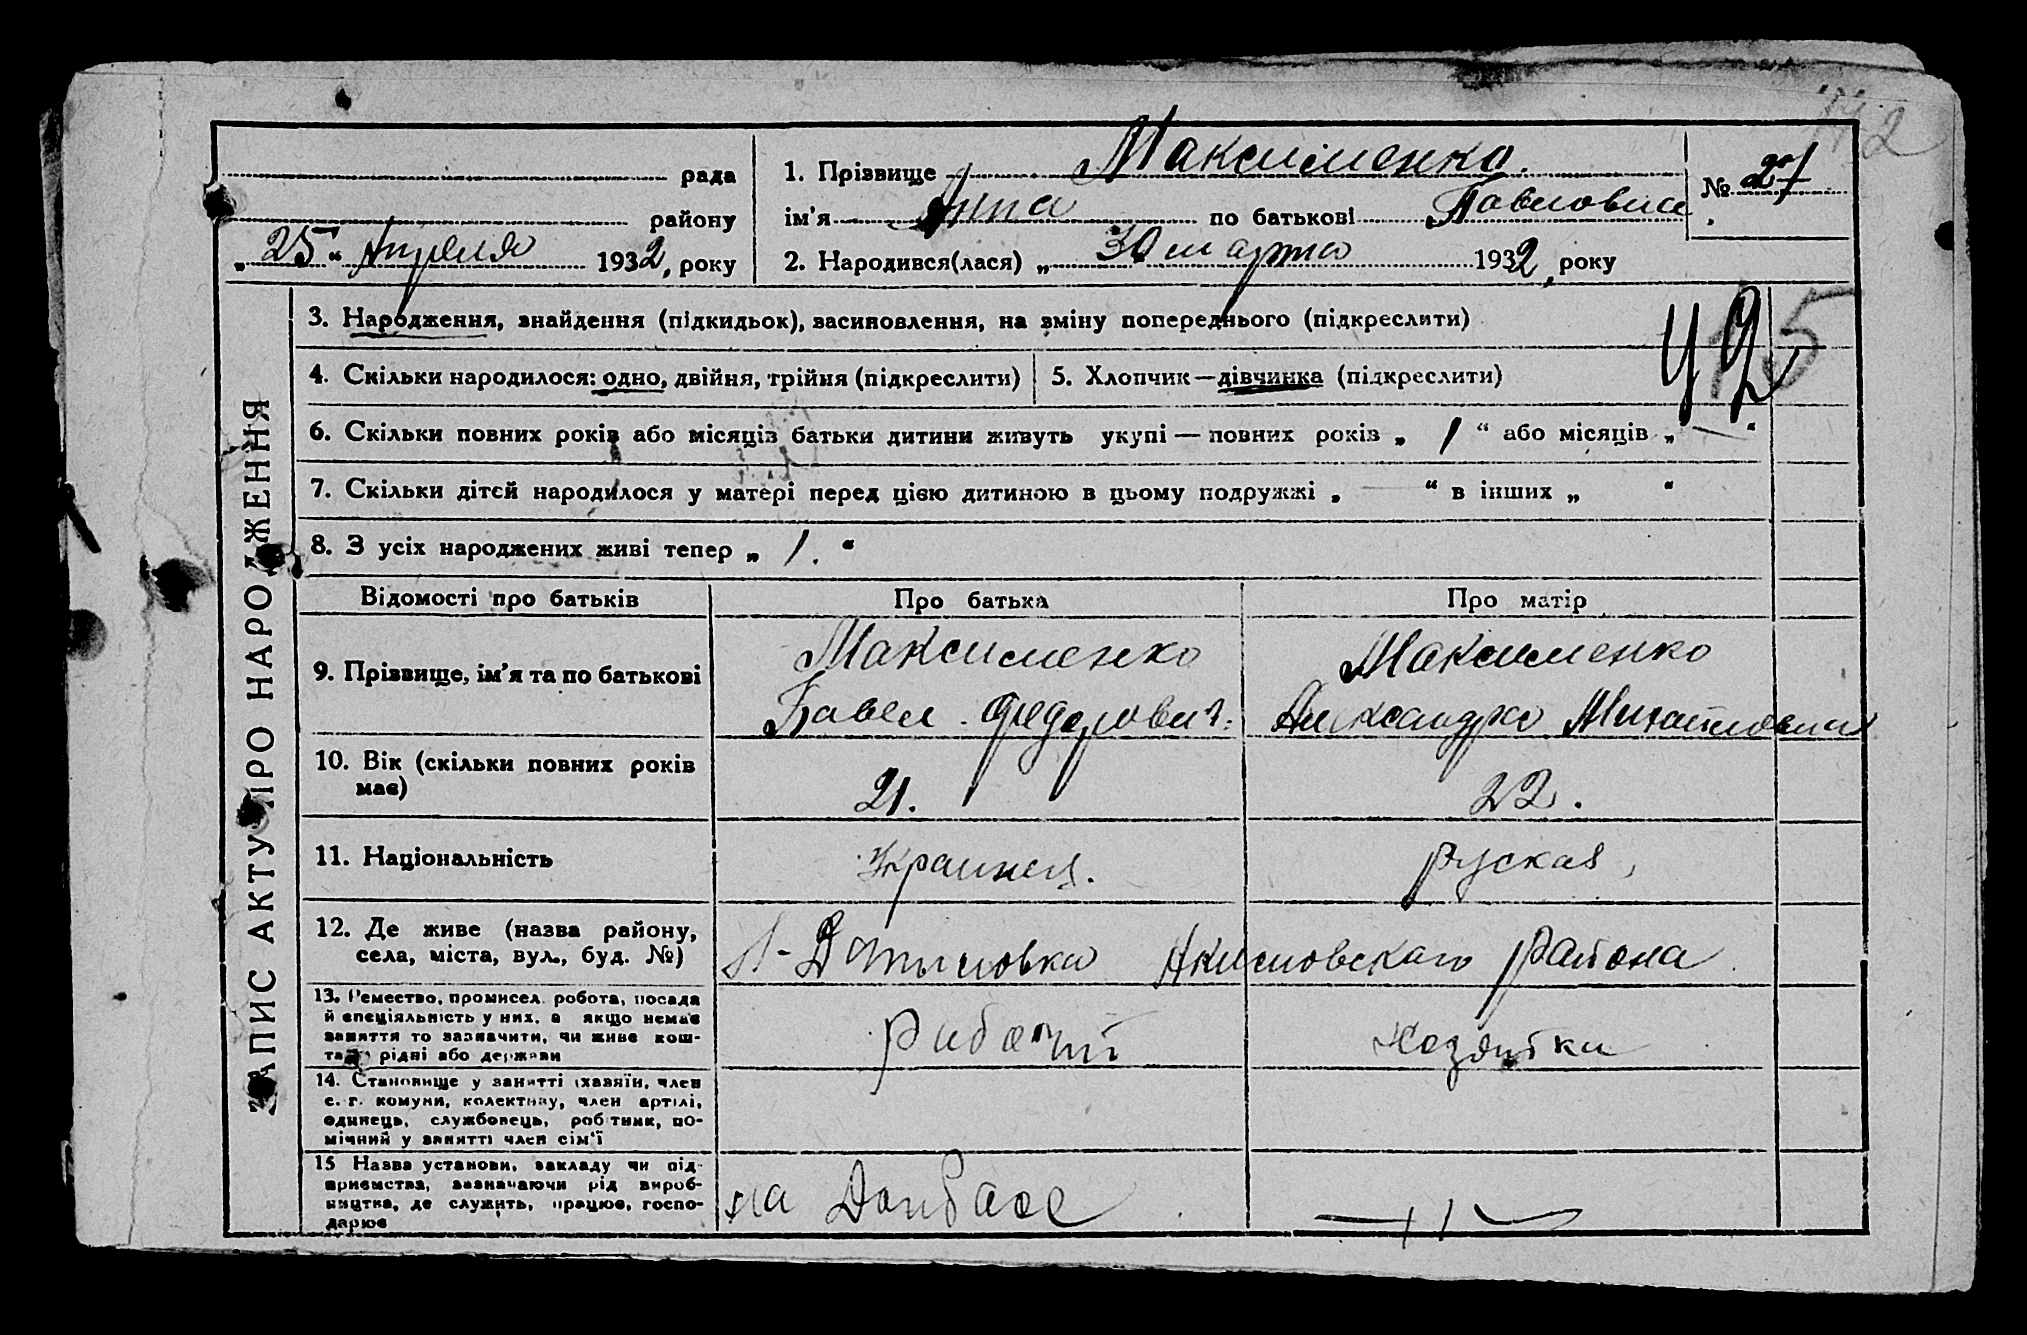 142
рада
району
„25“ Апреля 1932, року
1. Прізвище Максименко.
ім'я Анна по батькові Павловна
№ 27
2. Народився(лася) „30 марта 1932, року
ЗАПИС АКТУ ПРО НАРОДЖЕННЯ
3. Народження, знайдення (підкидьок), засиновлення, на зміну попереднього (підкреслити)
4. Скільки народилося: одно, двійня, трійня (підкреслити) 5. Хлопчик—дівчинка (підкреслити)
6. Скільки повних років або місяців батьки дитини живуть укупі — повних років „ 1 “ або місяців „ — “
7. Скільки дітей народилося у матері перед цією дитиною в цьому подружжі „ — “ в інших „ “
8. З усіх народжених живі тепер „ 1. “
Відомості про батьків Про батька Про матір
9. Прізвище, ім'я та по батькові
Максименко
Павел Федорович.
Максименко
Александра Михайловна
10. Вік (скільки повних років
має)
21.
22.
11. Національність
Украинец.
руская,
12. Де живе (назва району,
села, міста, вул., буд. №)
Акимовскаго района
13. Ремество, промисел, робота, посада
й спеціяльність у них, а якщо немає
заняття то зазначити, чи живе кош-
тами рідні або держави
Рабочий
Хозяйка
14. Становище у занятті (хазяїн, член
с.-г. комуни, колективу, член артілі,
одинець, службовець, робітник, по-
мічний у занятті член сім'ї
15 Назва установи, закладу чи під-
приємства, зазначаючи рід вироб-
ництва, де служить, працює, госпо-
дарює
на Донбасе
— // —